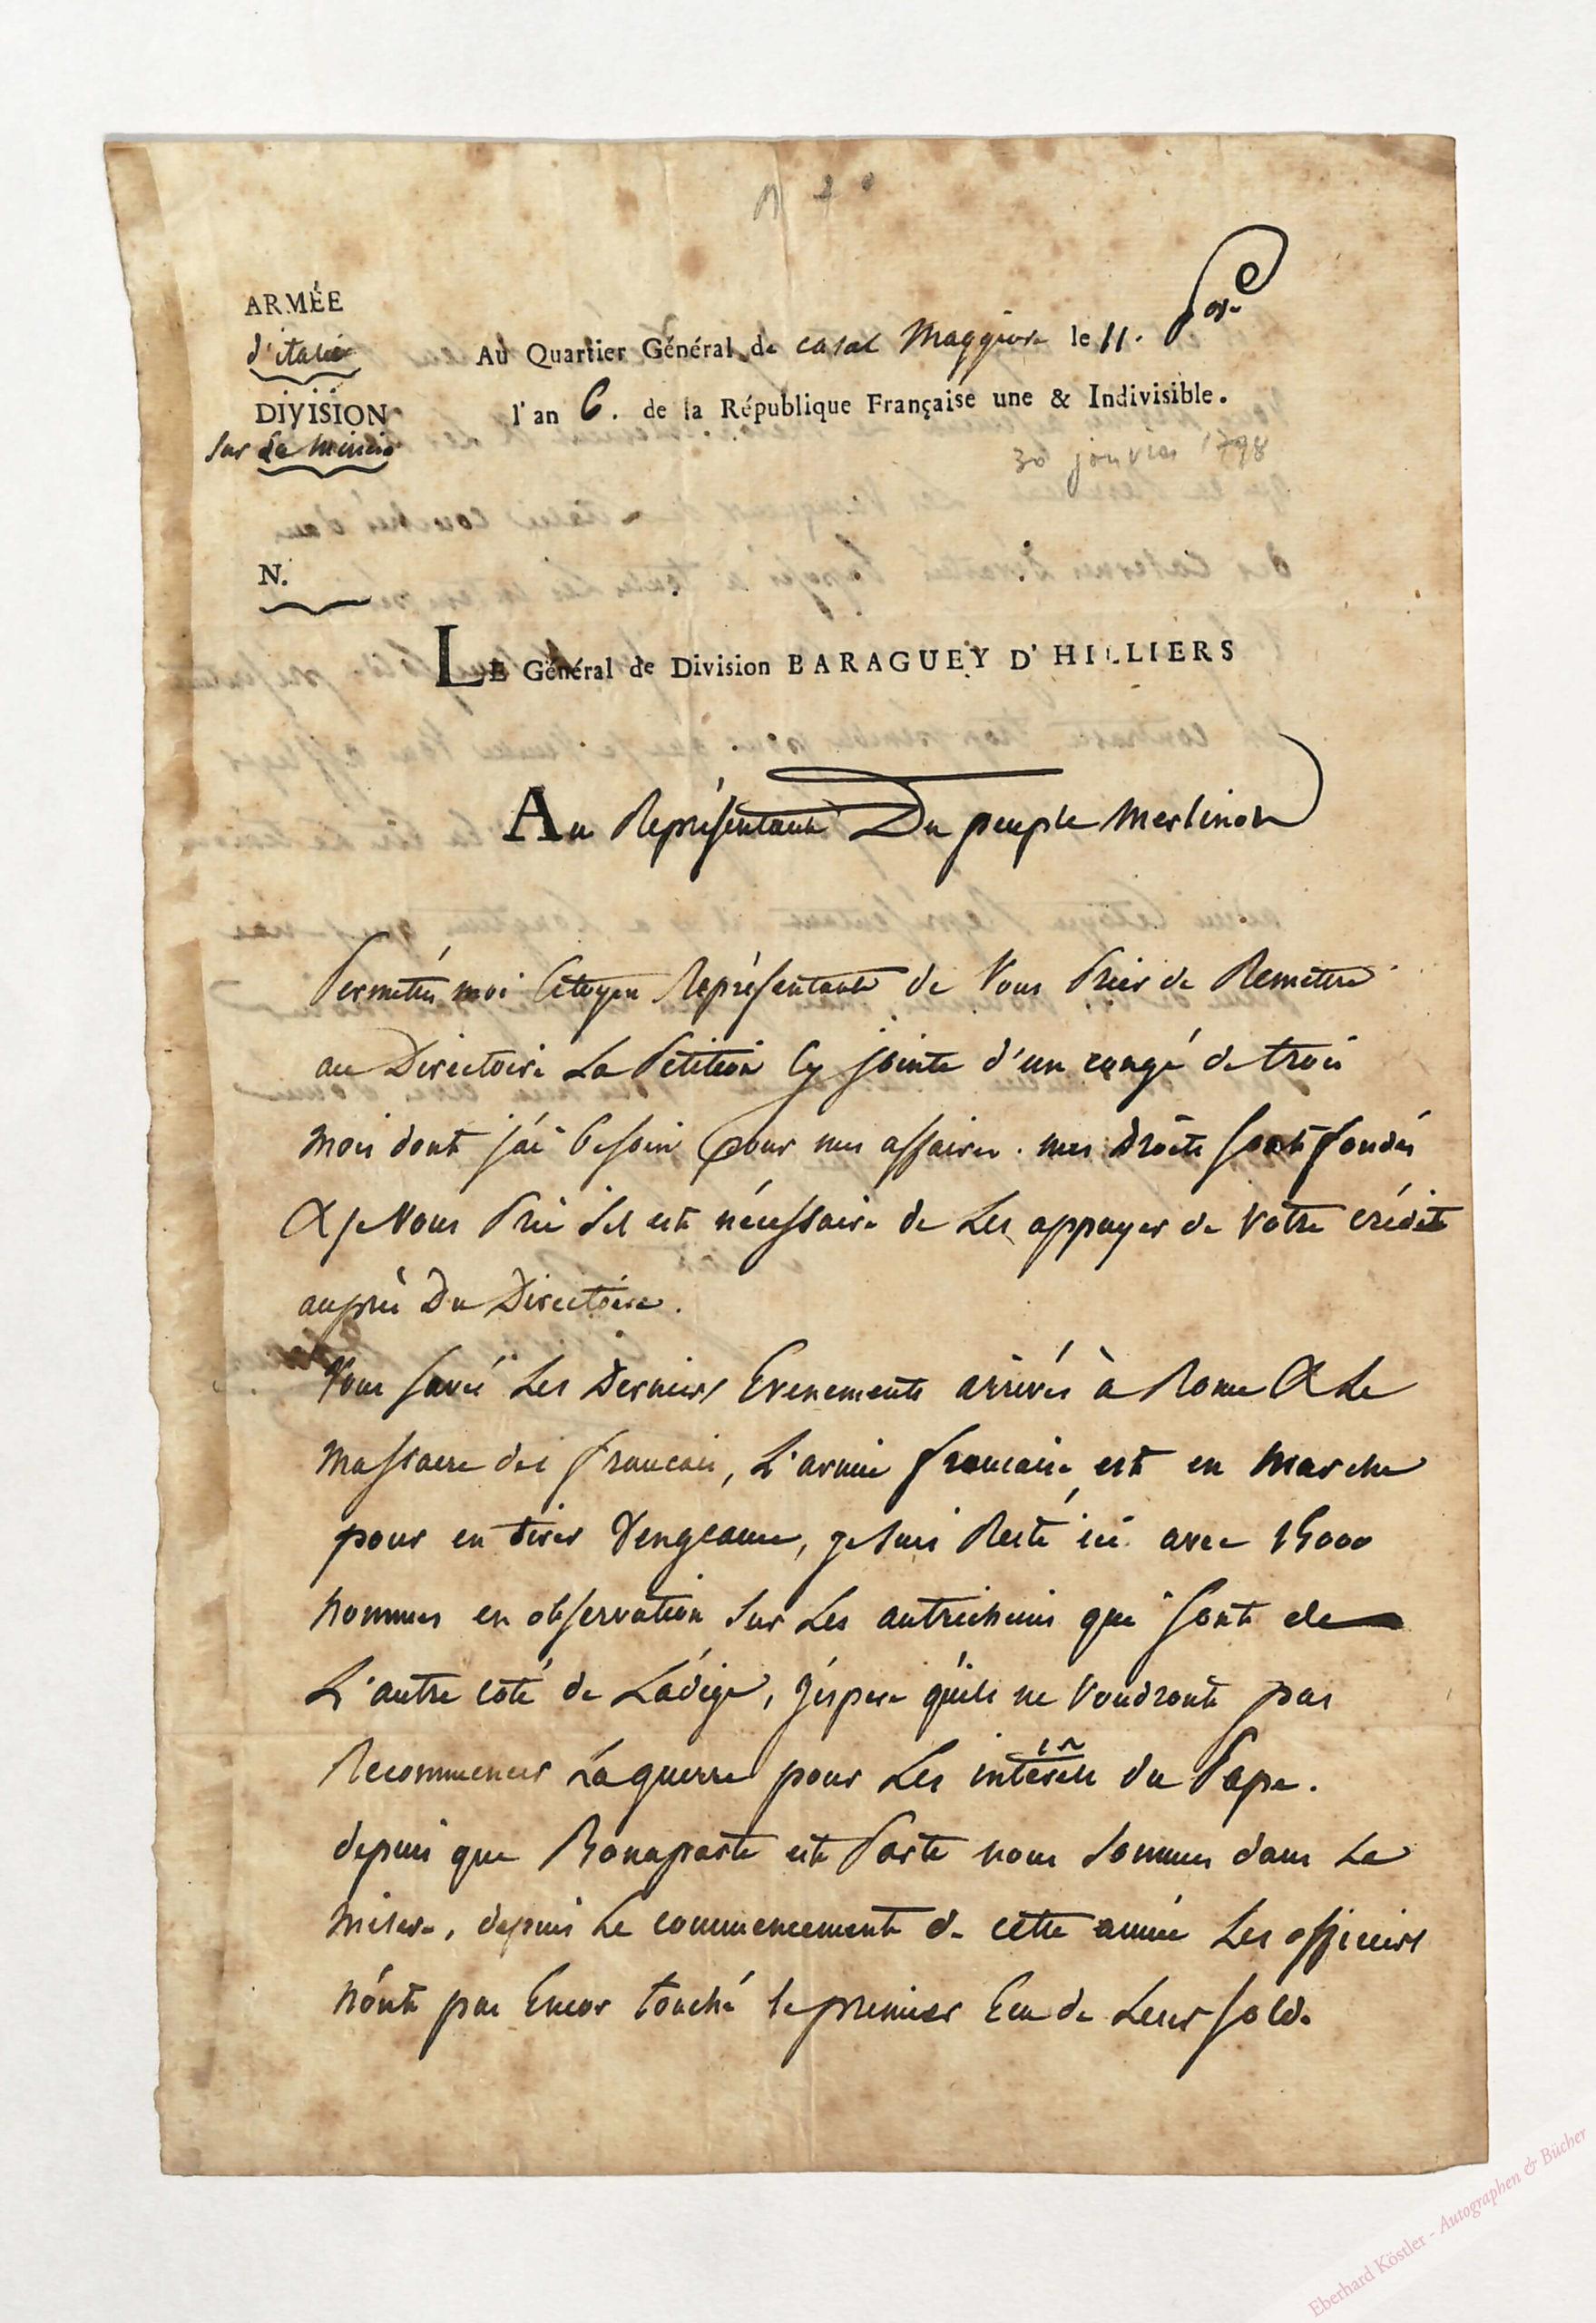 ARMÉE
d'italie
DIVISION
sur Le Mincio
N.
Au Quartier Général de casal Maggiore le 11. P
l'an 6. de la République Française une & Indivisible.
30 janvier 1798
LE Général de Division BARAGUEY D'HILLIERS
Au Représentant Du peuple Merlinot
Permettés moi Citoyen Représentant de Vous Prier de Remettre
au Directoire La Petition Cy jointe d'un congé de trois
mois dont j'ai besoin pour mes affaires. mes Droits sont fondés
& je Vous Prie s'il est nécessaire de Les appuyer de Votre crédit
auprès Du Directoire.
Vous savés Les Derniers Evenements arrivés à Rome & Le
Massacre des francais, L'armée francaise est en Marche
pour en tirer Vengeance, je suis Resté ici avec 15000
hommes en observation sur Les autrichiens qui sont de
L'autre coté de Ladige, j'espere qu'ils ne Voudront pas
Recommencer La guerre pour Les intérêts du Pape.
depuis que Bonaparte est Parti nous sommes dans La
Misere, depuis Le commencement de cette année Les officiers
n'ont pas Encor touché le premier Ecu de Leur solde
Eberhard Köstler - Autographen & Bücher